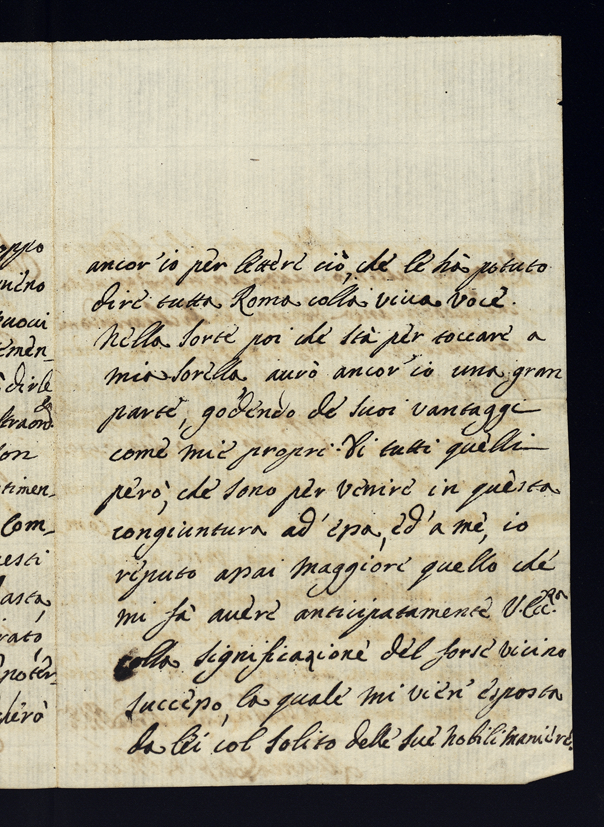 oppo
meno
nuovi
temen-
dirle
straord
son
timen-
Com-
uesti
asta
rato,
poter-
cherò
ancor'io per lettere ciò, che le hà potuto
dire tutta Roma colla viva voce.
Nella sorte poi che stà per toccare a
mia sorella avrò ancor'io una gran
parte, godendo de suoi vantaggi
come miei propri. Di tutti quelli
però, che sono per venire in questa
congiuntura ad' essa, ed' a me, io
reputo assai maggiore quello che
mi fà avere anticipatamente V. Ecc.za
colla significazione del forse vicino
successo, la quale mi vien' esposta
da lei col solito delle sue nobili maniere,